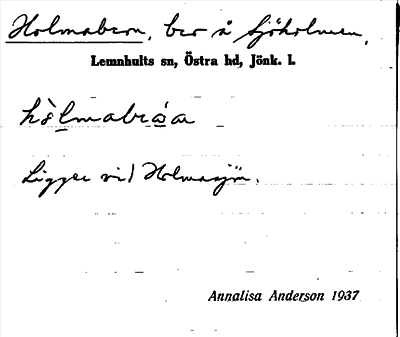 Holmabron, bro å Sjöholmen,
Lemnhults sn, Östra hd, Jönk. l.
hòlmabróa
Ligger vid Holmasjön.
Annalisa Anderson 1937